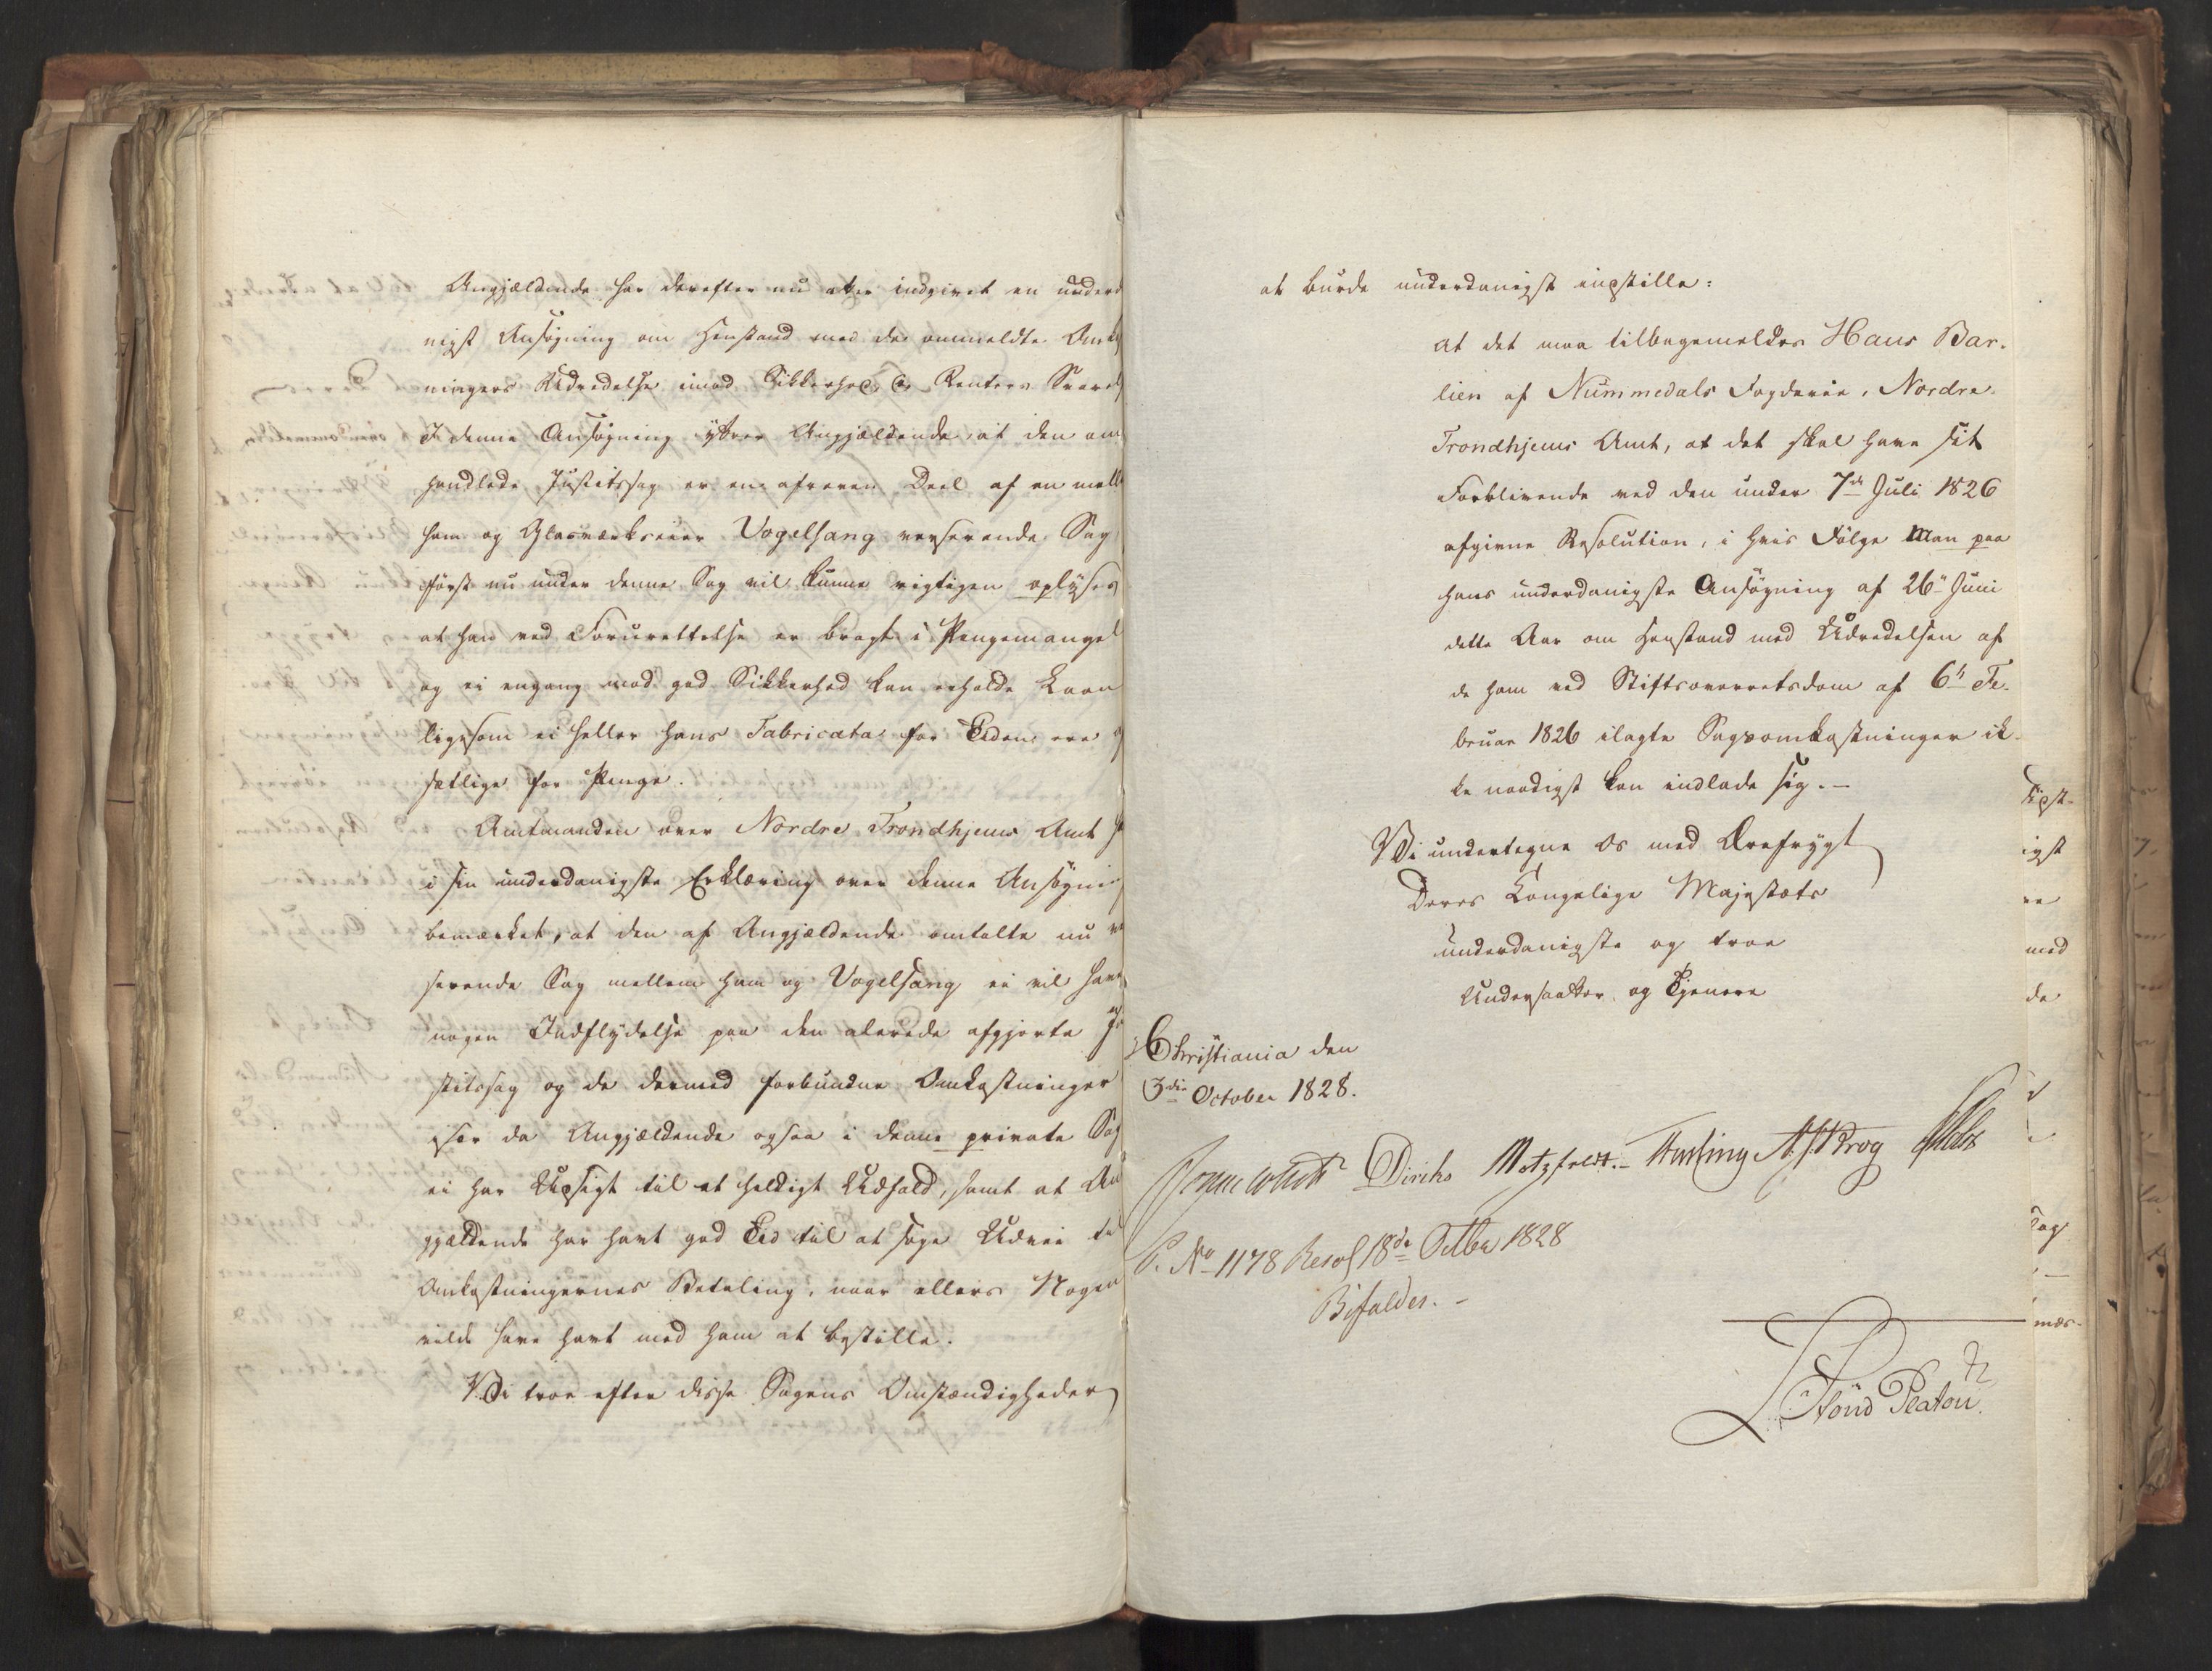 Angjældende har derefter nu atter indgivet en underd
nigst Ansøgning om Henstand med de ommeldte Omk
ningers Udredelse imod Sikkerhed & Renters Svarel
I denne Ansøgning yttrer Angjældende at den om
handlede Justitssag er en afreven Deel af en mell
ham og Glasværkseier Vogelsang verserende Sag
først nu under denne Sag vil kunne rigtigen oplyses
at han ved Forurettelse er bragt i Pengemangel
og ei engang mod god Sikkerhed kan erholde Laan
ligesom ei heller hans Fabricata for Tiden ere
sættlige for Penge.
Amtmanden over Nordre Trondhjems Amt h
i sin underdanigste Erklæring over denne Ansøgnin
bemærket, at den af Angjældende omtalte nu v
serende Sag mellem ham og Vogelsang ei vil have
nogen Indflydelse paa den alerede afgjorte Ju
stitssag og de dermed forbundne Omkostninger
især da Angjældende ogsaa i denne private Sag
ei har Udsigt til et heldigt Udfald, samt at An
gjældende har havt god Tid til at søge Udvei til
Omkostningernes Betaling, naar ellers Nogen
vilde have havt med ham at bestille.
Vi troe efter disse Sagens Omstændigheder
at burde underdanigst indstille:
at det maa tilbagemeldes Hans Bar-
lien af Nummedals Fogderie, Nordre
Trondhjems Amt, at det skal have sit
Forblivende ved den under 7de Juli 1826
afgivne Resolution, i hvis Følge Man paa
hans underdanigste Ansøgning af 26de Juni
dette Aar om Henstand med Udredelsen af
de ham ved Stiftsoverretsdom af 6te Fe-
bruar 1826 ilagte Sagsomkostninger ik-
ke naadigst kan indlade sig.-
Vi undertegne os med Ærefrygt
Deres Kongelige Majestæts
underdanigste og troe
Undersaatter og Tjenere
Christiania den
3die October 1828.
Jonas Collett Diriks Motzfeldt.- Fasting N. J. Krog
P. No 1178 Resol 18de Octbr 1828
Bifaldes.-
Stoud Platou